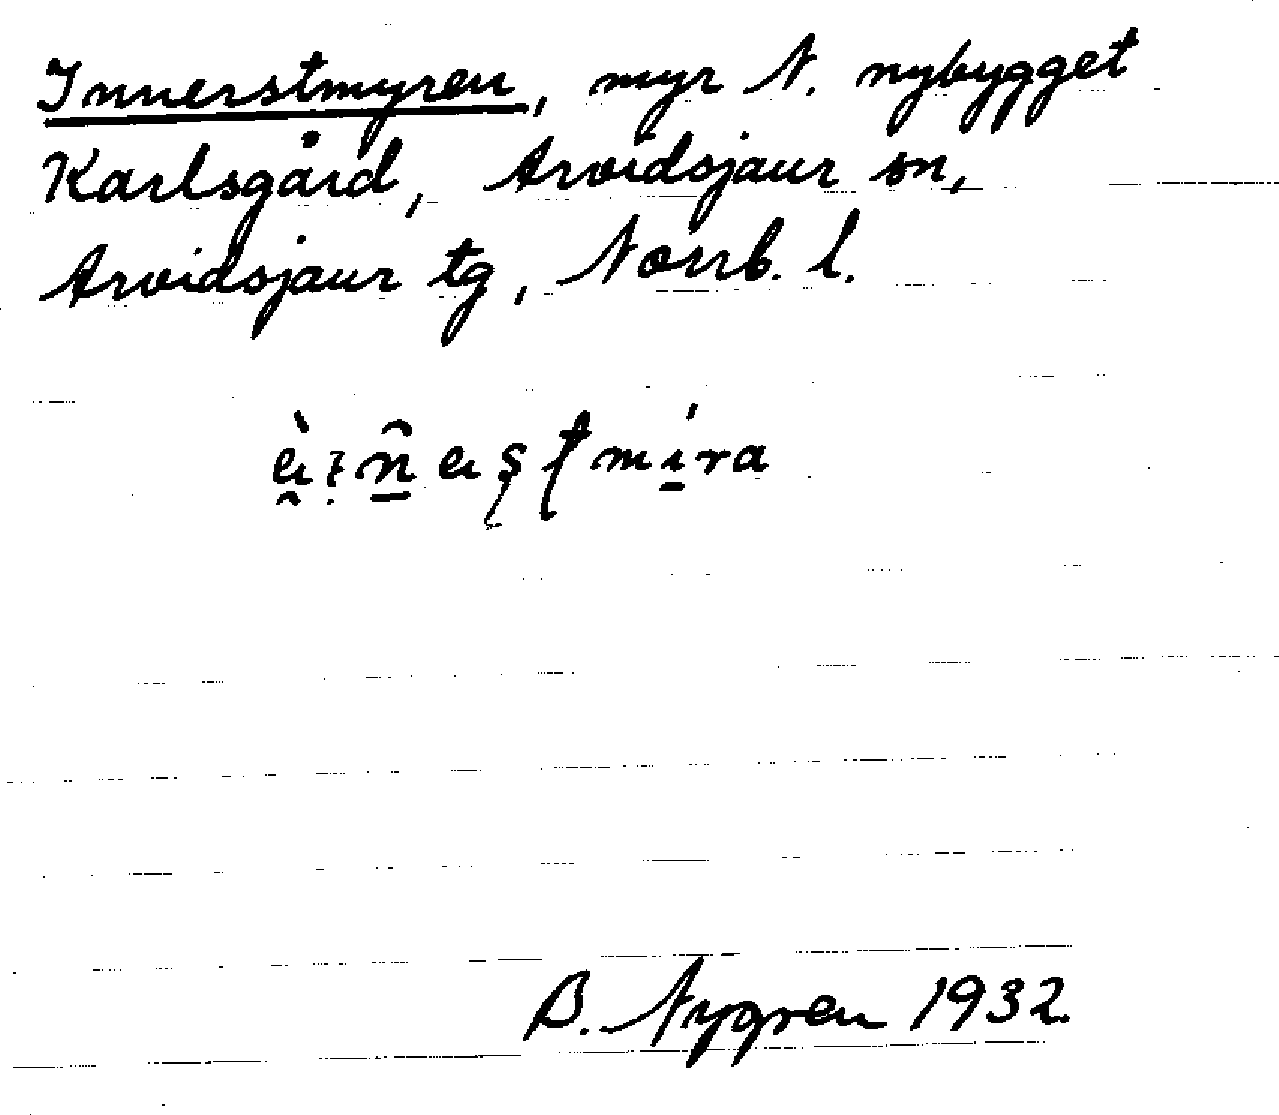 Innerstmyren, myr N. nybygget
Karlsgård, Arvidsjaur sn,
Arvidsjaur tg, Norrb. l.
B. Nygren 1932.